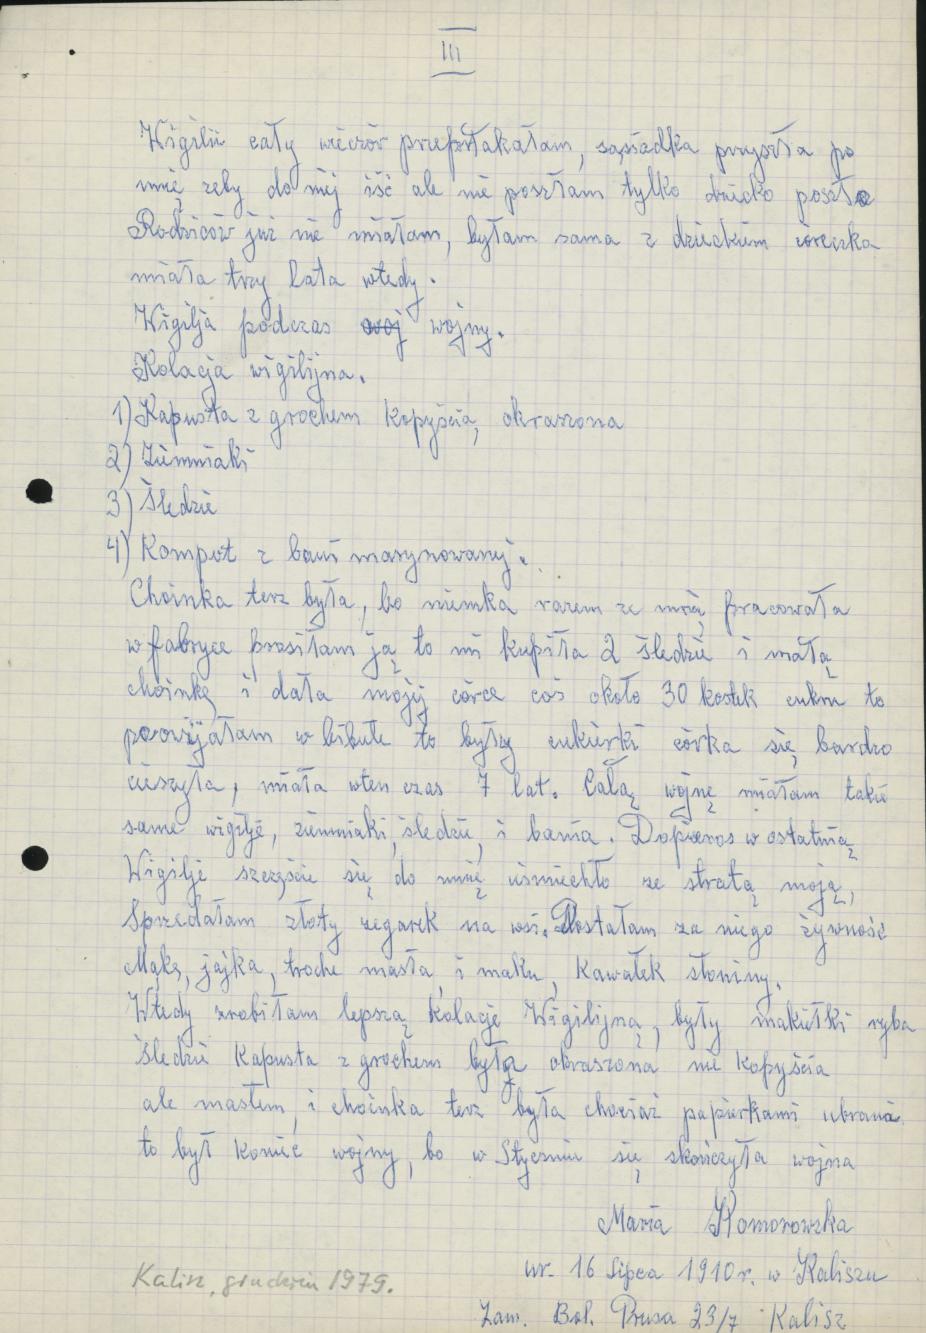 III
Wigilii cały wieczór przepłakałam, sąsiadka przyszła po
mnię żeby do niej iść ale nie poszłam tylko dziecko poszło
Rodziców już nie miałam, byłam sama z dzieckiem córeczka
miała trzy lata wtedy.
Wigilja podczas wojny.
Kolacja wigilijna.
1) Kapusta z grochem Kopyścią, okraszona
2) Ziemniaki
3) Śledzie
4) Kompot z bani marynowanej.
Choinka terz była, bo niemka razem ze mną pracowała
w fabryce prosiłam ją to mi kupiła 2 śledzie i małą
choinkę i dała mojej córce coś około 30 kostek cukru to
poowijałam w bibułe to były cukierki córka się bardzo
cieszyła, miała wten czas 7 lat. Całą wojnę miałam takie
same wigilje, ziemniaki, śledzie, i bania. Dopieros w ostatnią
Wigilje szczęście się do mnię uśmiechło ze stratą moją,
Sprzedałam złoty zegarek na wsi. Dostałam za niego żywność
Mąkę, jajka, troche masła, i maku, Kawałek słoniny.
Wtedy zrobiłam lepszą Kolacje Wigilijną, były makiełki ryba
śledzie Kapusta z grochem była okraszona nie Kopyścia
ale masłem, i choinka terz była chociaż papierkami ubrana
to był koniec wojny, bo w Styczniu się skończyła wojna
Maria Komorowska
ur. 16 lipca 1910 r. w Kaliszu
Kalisz, grudzień 1979.
Zam. Bol. Prusa 23/7 Kalisz